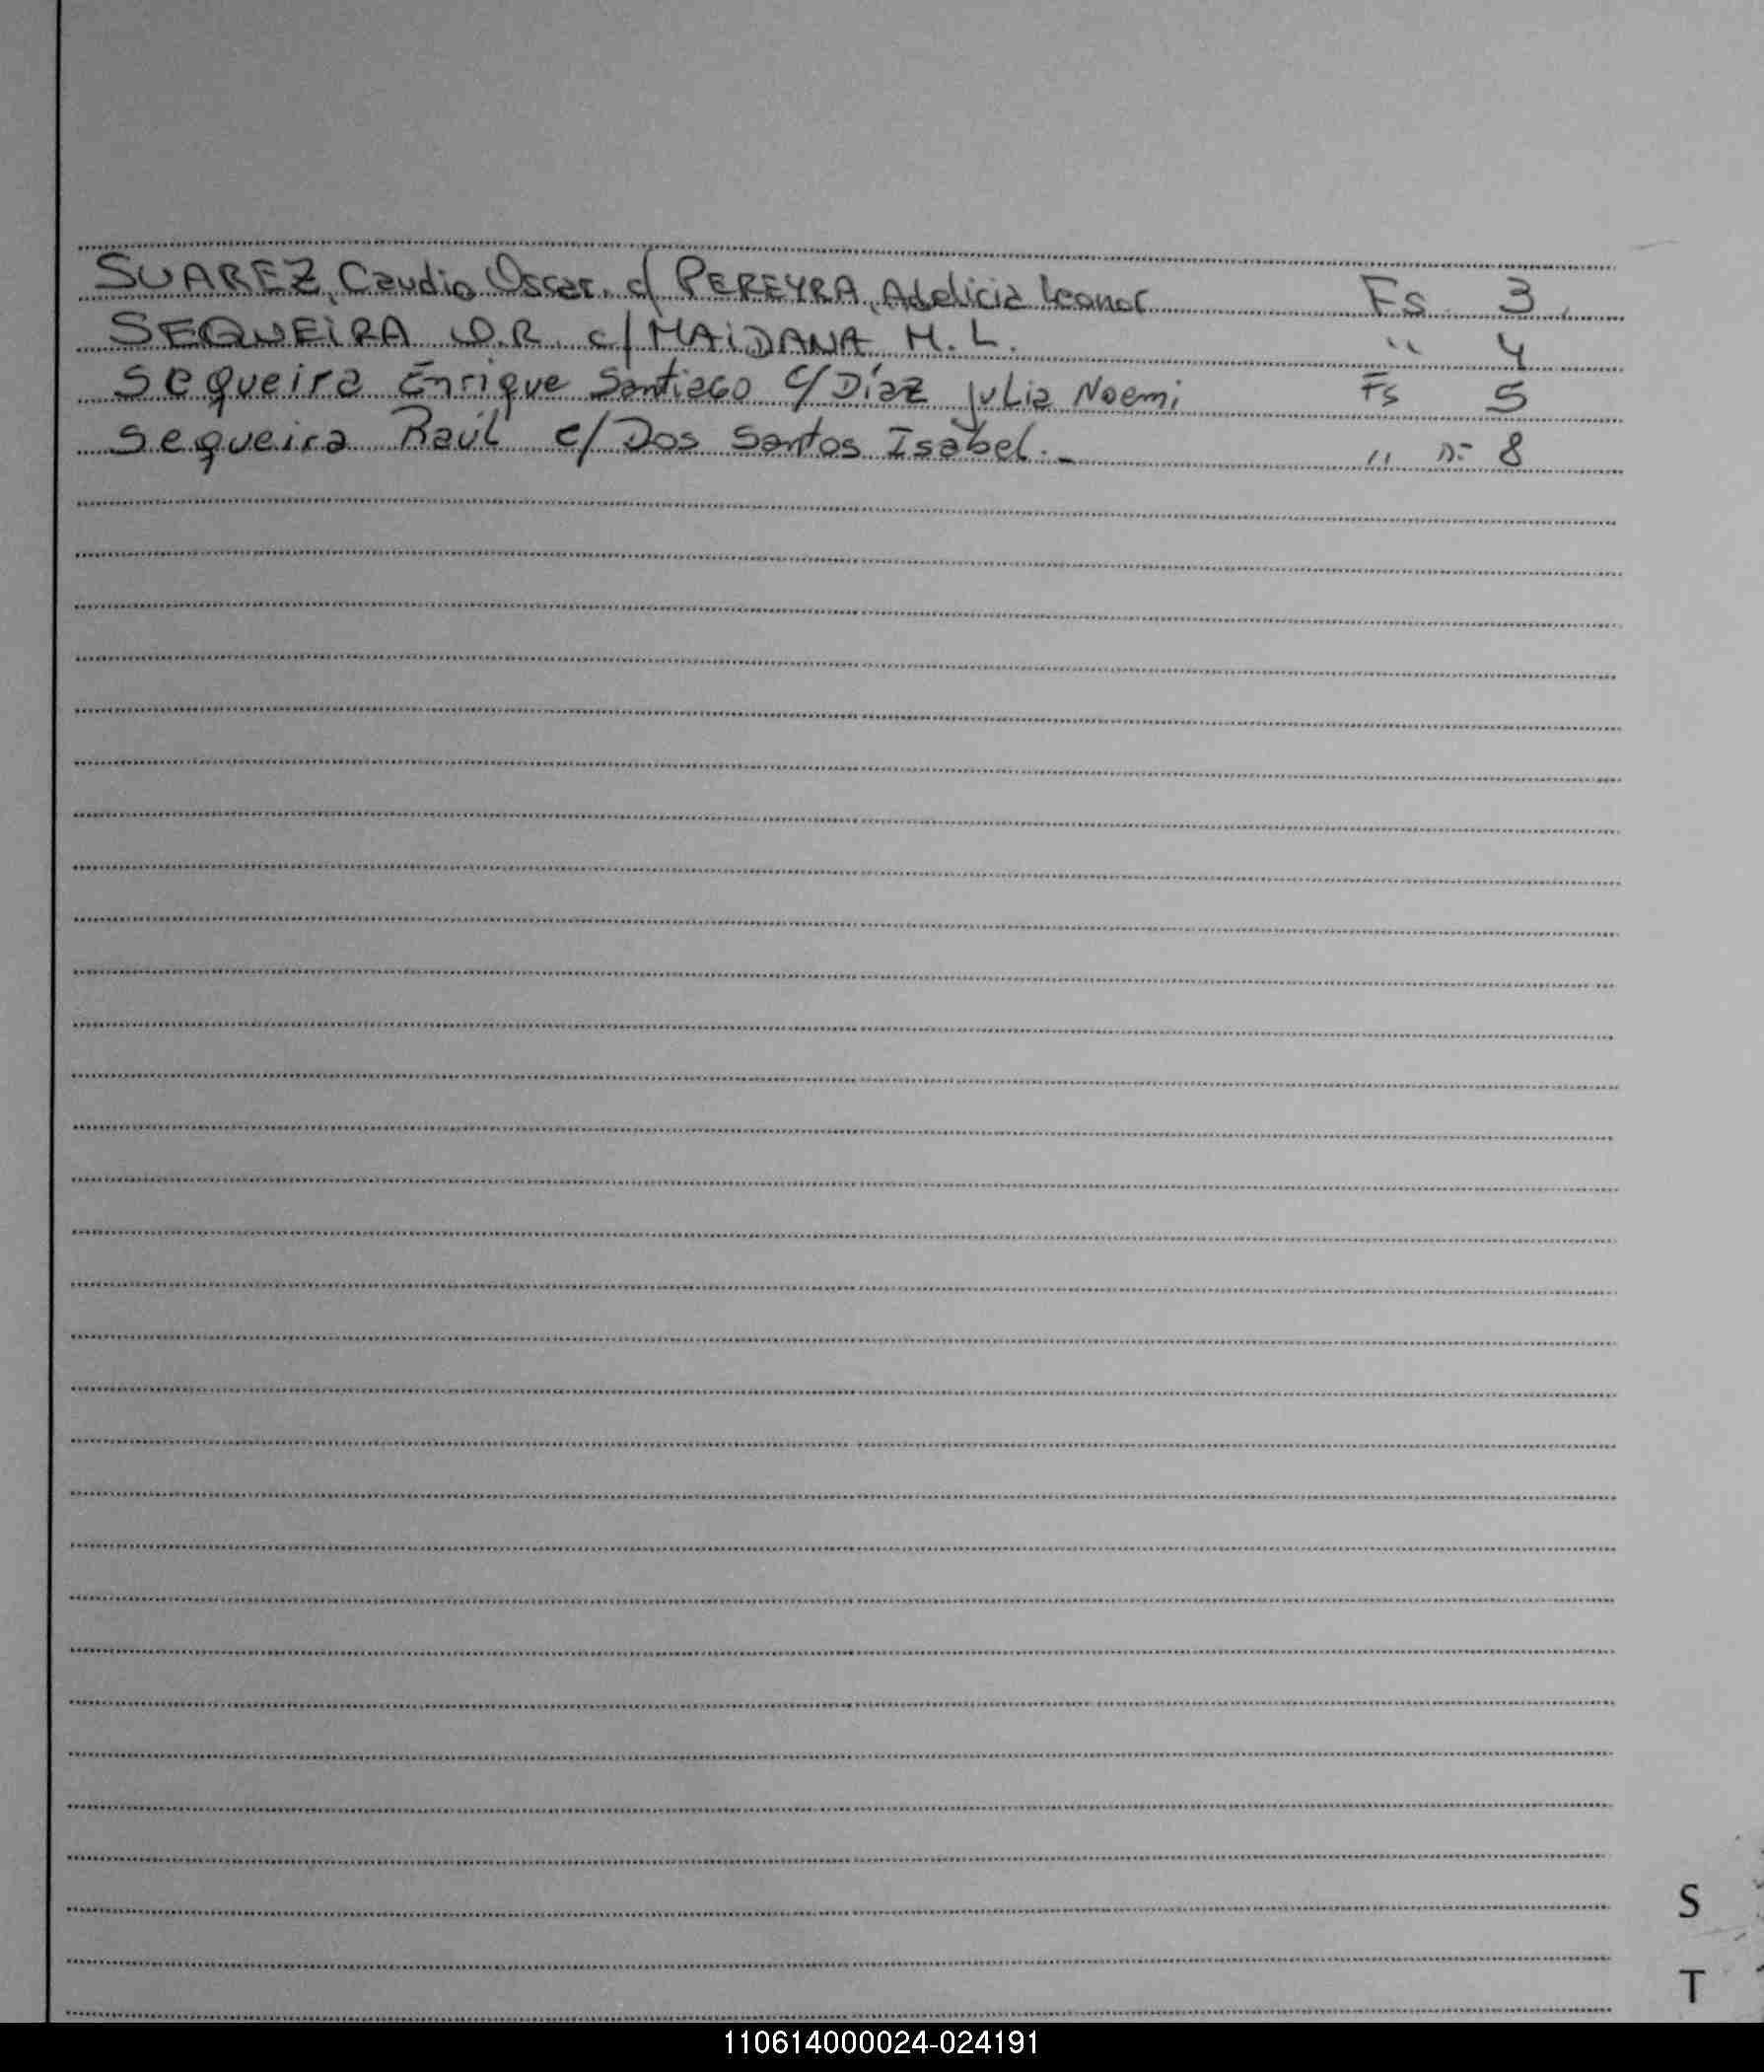 SUAREZ, Caudio Oscar. c/ PEREYRA, Adelicia Leonor Fs 3.
SEQUEIRA O.R. c/ MAiDANA M.L. " 4
Sequeira Enrique Santiago c/ Díaz Julia Noemi Fs 5
Sequeira Raúl c/ Dos Santos Isabel.- " 8
S
T
110614000024-024191